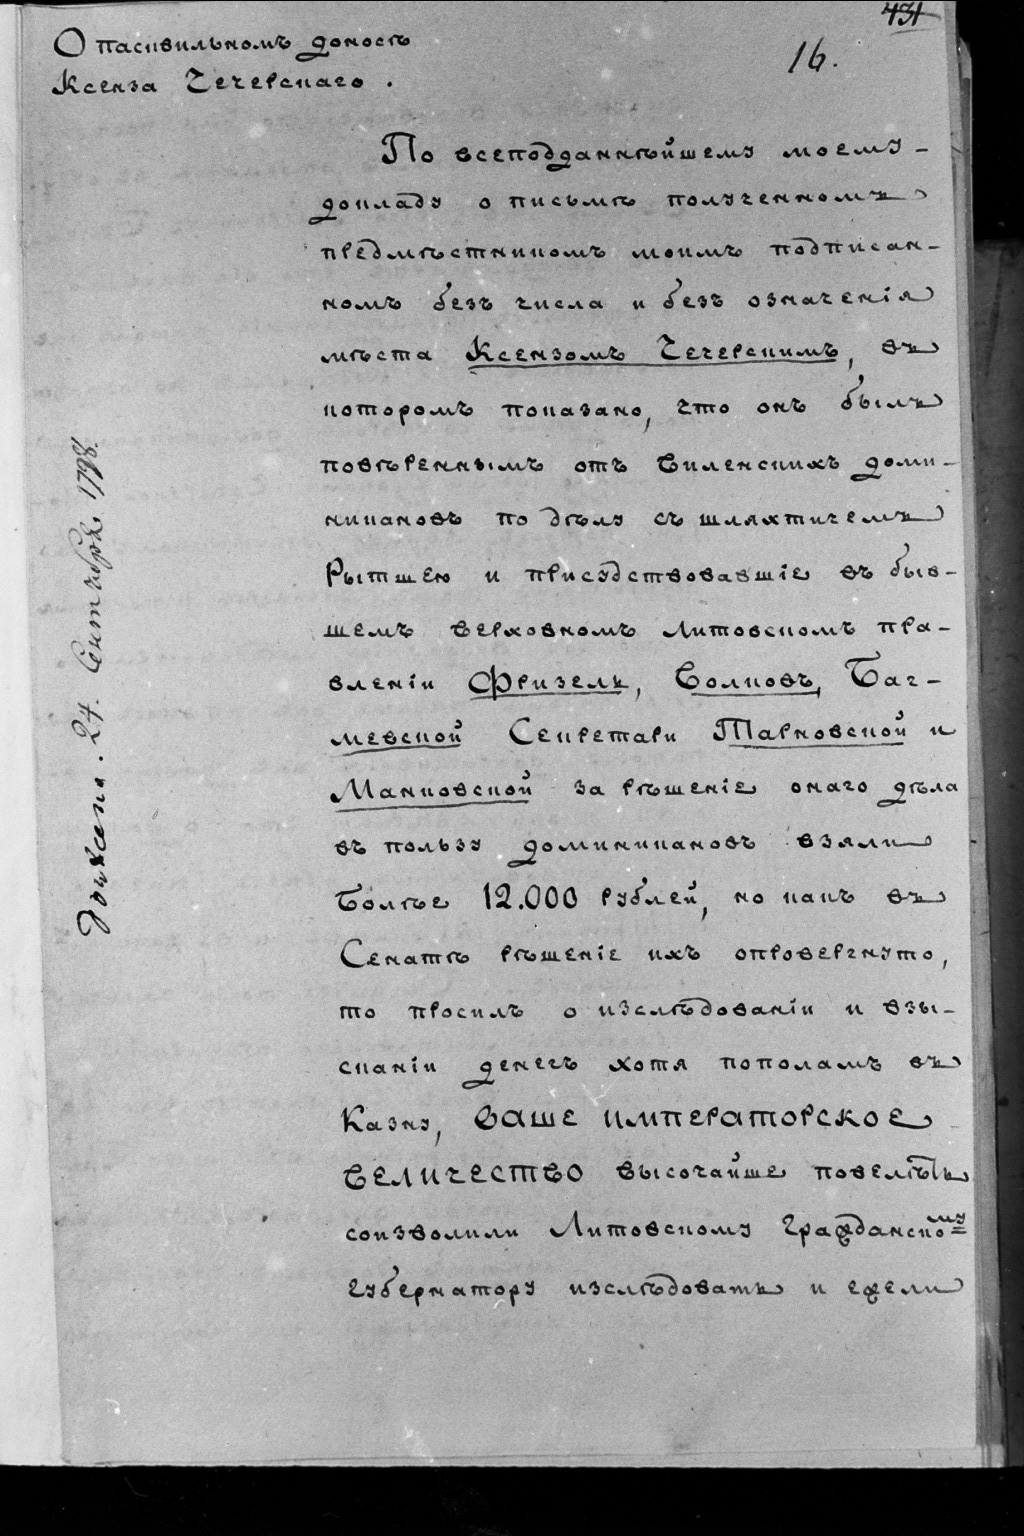 431
16.
О пасквильномъ доносѣ
Ксенза Чечерскаго.
По всеподданнѣйшему моему
докладу о письмѣ полученномъ
предмѣстникомъ моимъ подписан-
номъ безъ числа и безъ означенія
мѣста Ксензомъ Чечерскимъ, въ
которомъ показано, что онъ былъ
повѣреннымъ отъ Виленскихъ доми-
никановъ по дѣлу съ шляхтичемъ
Рытшею и присудствовавшіе въ быв-
шемъ Верховномъ Литовскомъ пра-
вленіи Фризель, Волковъ, Баг-
мевской Секретари Тарновской и
Манковской за рѣшеніе онаго дѣла
въ пользу доминикановъ взяли
болѣе 12.000 рублей, но какъ въ
Сенатѣ рѣшеніе ихъ опровергнуто,
то просилъ о изслѣдованіи и взы-
сканіи денегъ хотя пополамъ въ
Казну, ВАШЕ ИМПЕРАТОРСКОЕ
ВЕЛИЧЕСТВО высочайше повелѣть
соизволили Литовскому Гражданскому
губернатору изслѣдовать и ежели
24. Сентября 1798.